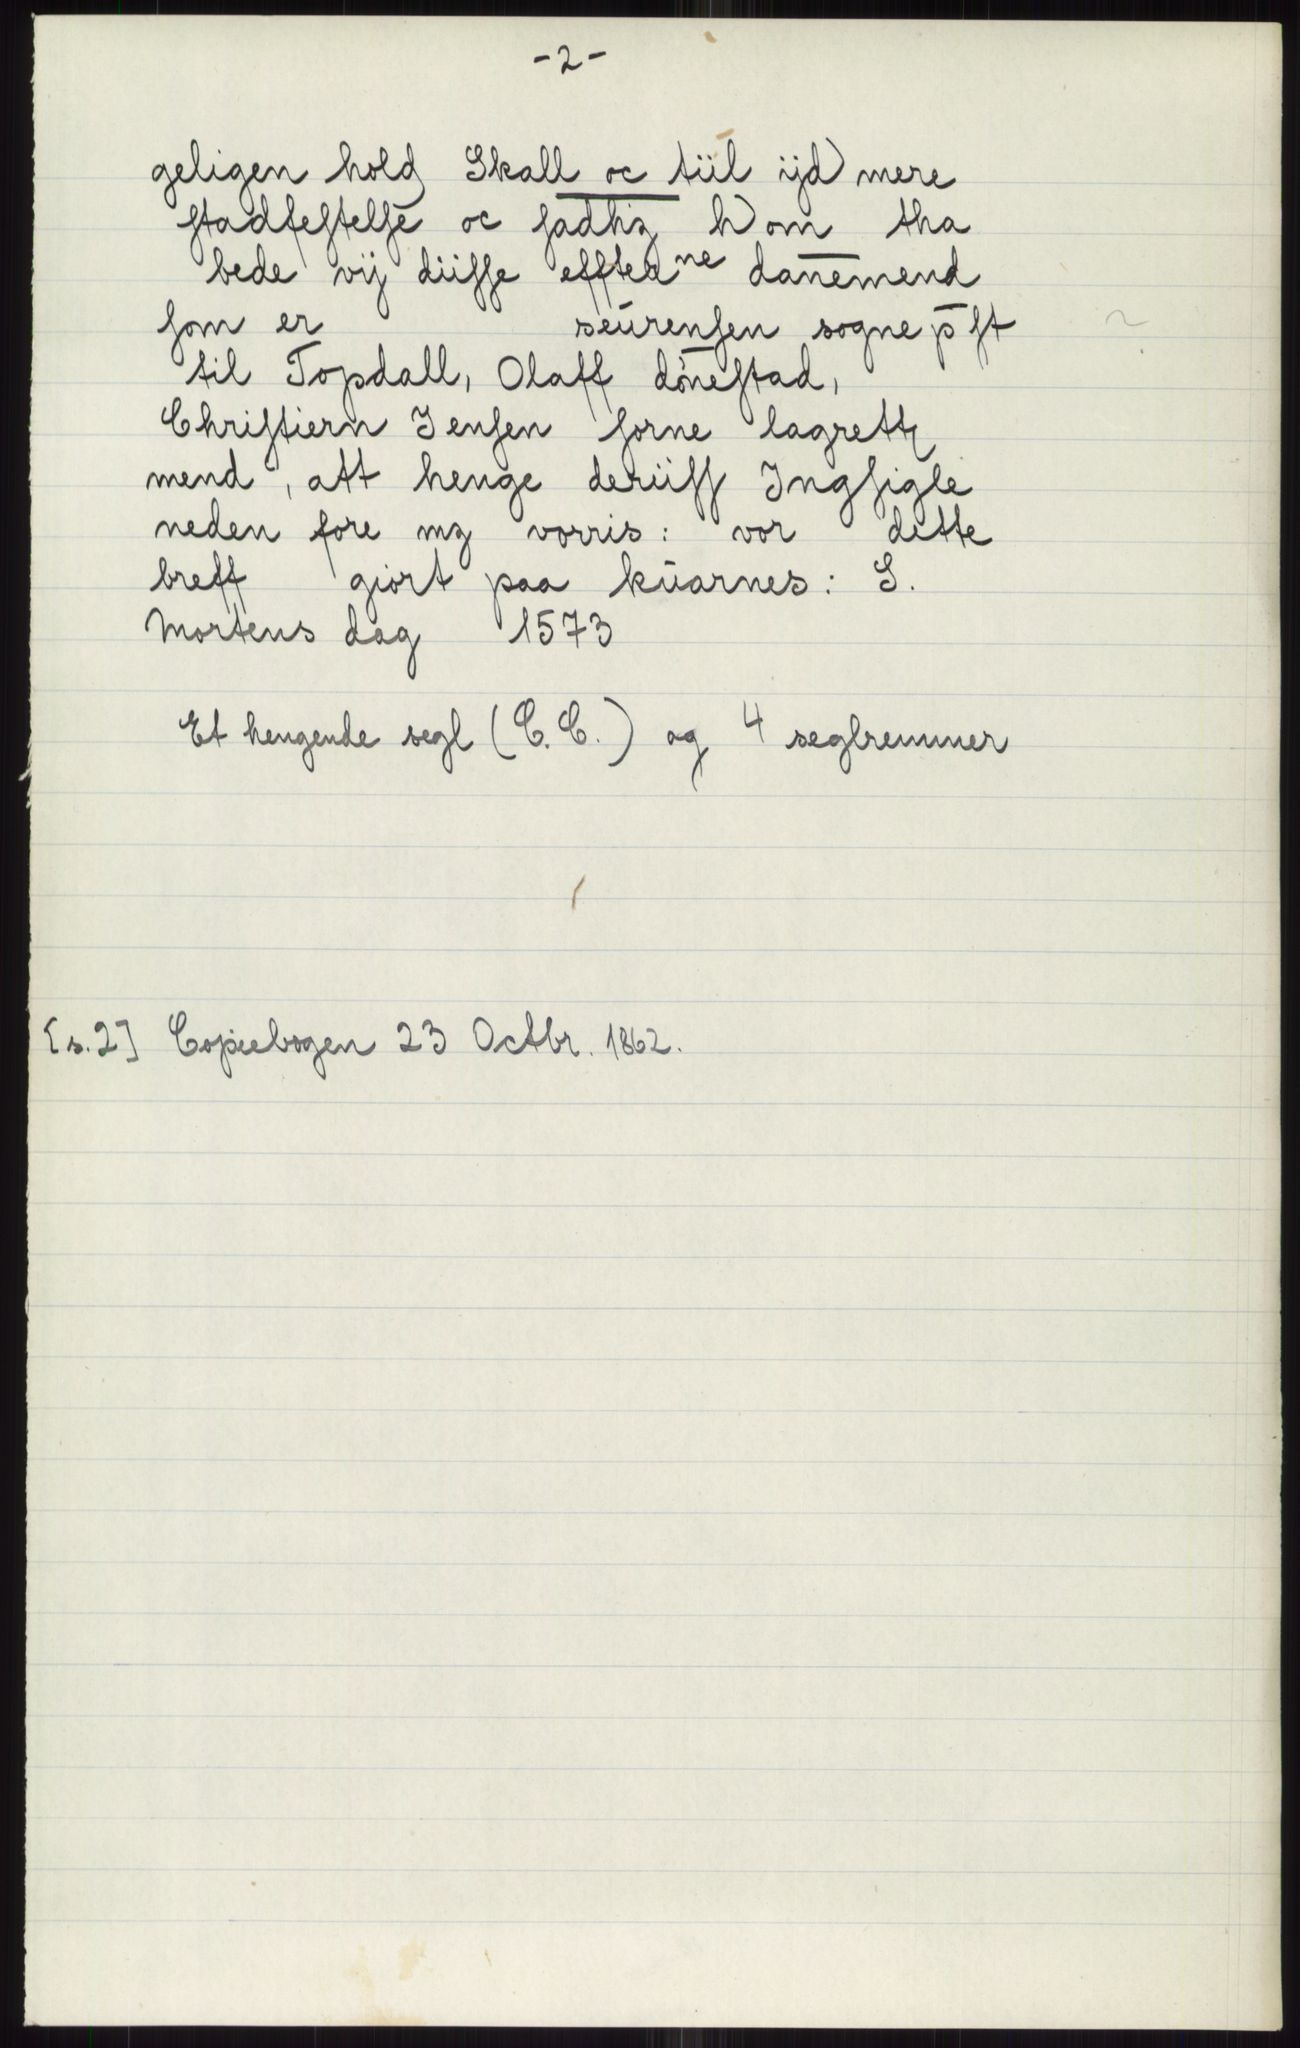 -2-
geligen hold Skall oc tiil ijd mere
ſtadfeſtelſe oc ſadhꝫ h)om tha
bede vij düſſe effterne danemend
ſom er seūrenſen sogne p̄ſt
til Topdall, Olaff dōneſtad,
Chriſtiern Jenſen ſorne lagrettꝫ
mend, att henge derūſſ Ingſigle
neden fore mꝫ vorris: vor dette
breff giort paa kūarnes: S.
Mortens dag 1573
Et hengende segl (C.C.) og 4 seglremmer
[s.2] Copiebogen 23 Octbr. 1862.